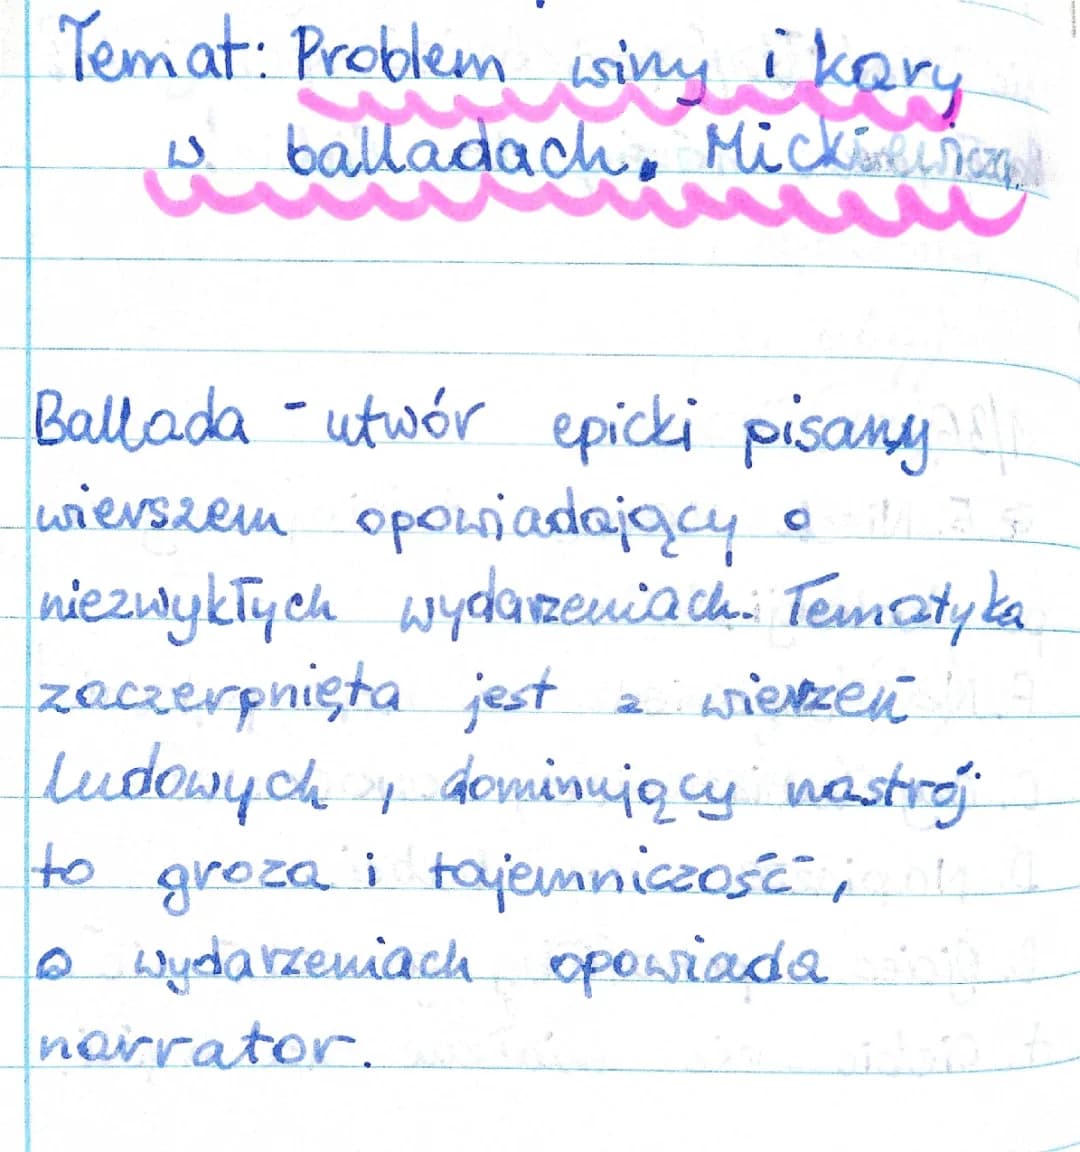 Temat: Problem winy i kary
w balladach. Mickiewicza.
Ballada - utwór epicki pisany
wierszem opowiadający o
niezwykłych wydarzeniach. Tematyka
zaczerpnięta jest z wierzeń
ludowych, dominujący nastrój
to groza i tajemniczość,
o wydarzeniach opowiada
narrator.